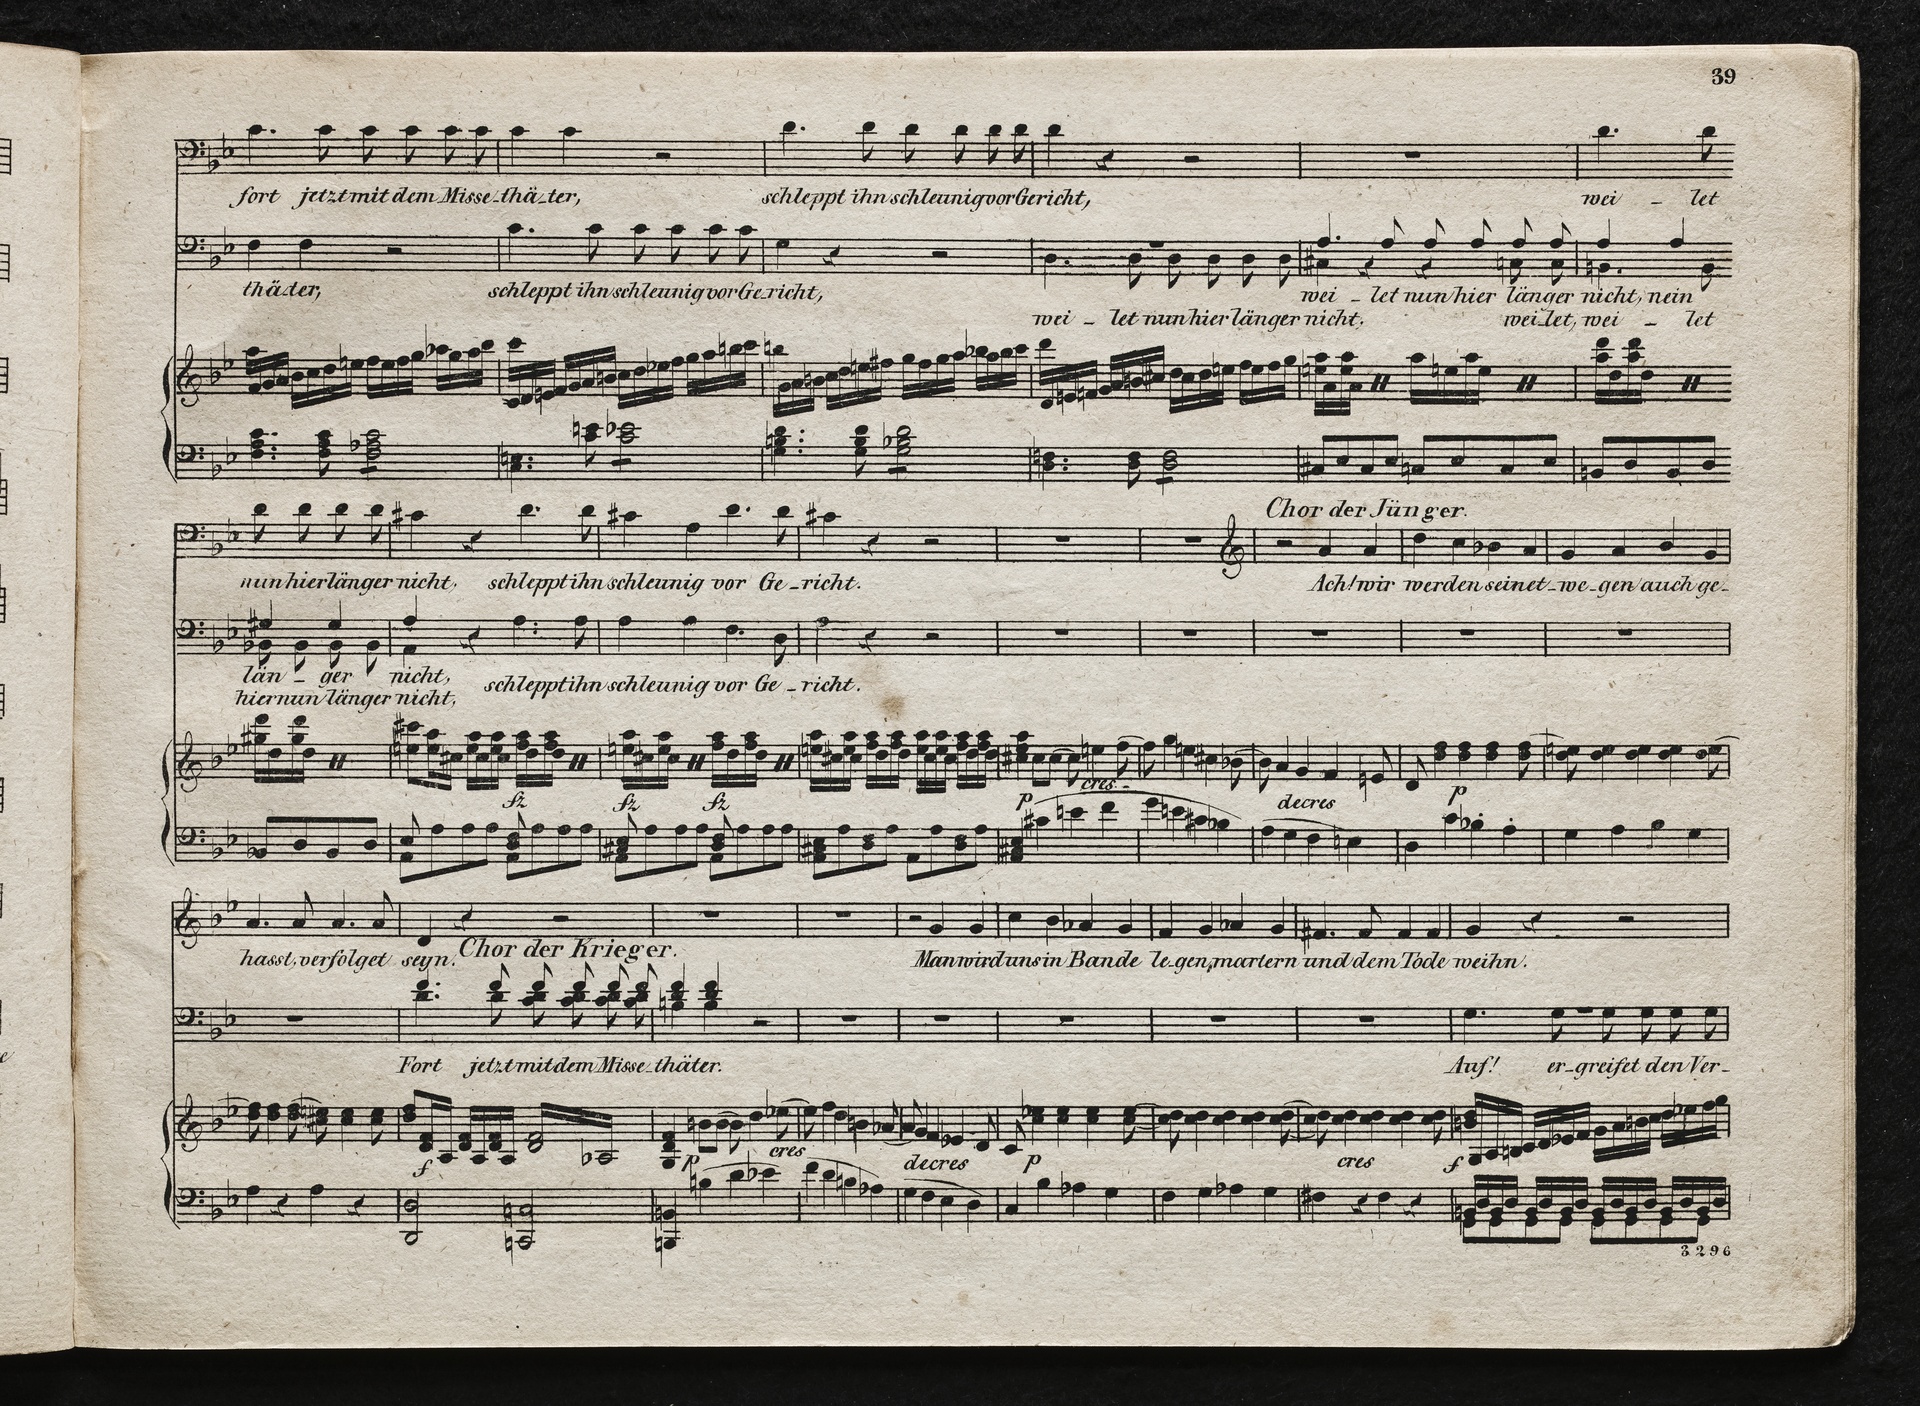 39
fort jetzt mit dem Misse_thä_ter, schleppt ihn schleunig vor Gericht, wei - let
thä_ter, schleppt ihn schleunig vor Ge_richt, wei - let nun hier länger nicht, nein
wei - let nun hier länger nicht, wei_let, wei - let
Chor der Jünger.
nun hier länger nicht, schleppt ihn schleunig vor Ge_richt. Ach! wir werden seinet_we_gen auch ge_
län - ger nicht, schleppt ihn schleunig vor Ge_richt.
hier nun länger nicht,
fz fz fz p cres - decres p
hasst, verfolget seyn. Chor der Krieger. Man wird uns in Bande le_gen, martern und dem Tode weihn.
Fort jetzt mit dem Misse_thäter. Auf! er_greifet den Ver_
f p cres decres p cres f
3296